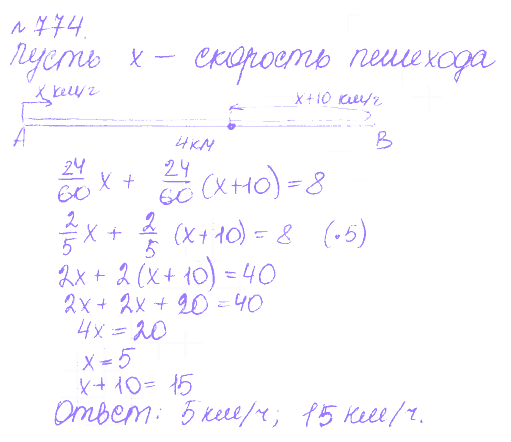 №774.
Пусть x – скорость пешехода
x км/ч
x+10 км/ч
A
4км
B
24/60 x + 24/60 (x+10) = 8
2/5 x + 2/5 (x+10) = 8 (·5)
2x + 2(x+10) = 40
2x + 2x + 20 = 40
4x = 20
x = 5
x+10 = 15
Ответ: 5 км/ч; 15 км/ч.